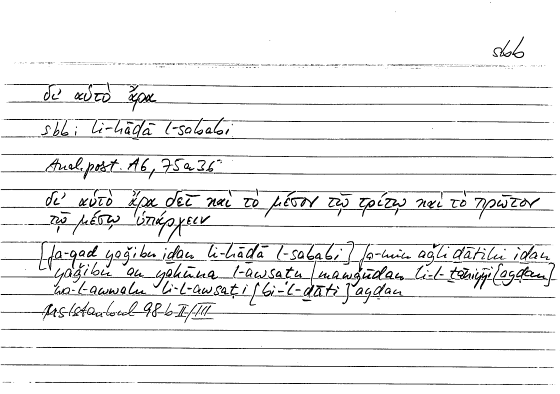 sbb
δι' αὐτὸ ἄρα
sbb: li-hāḏā l-sababi
Anal. post. A6, 75a35
δι' αὐτὸ ἄρα δεῖ καὶ τὸ μέσον τῷ τρίτῳ καὶ τὸ πρῶτον
τῷ μέσῳ ὑπάρχειν
[fa-qad yaǧibu iḏan li-hāḏā l-sababi] fa-min aǧli ḏātihi iḏan
yaǧibu an yakūna l-awsaṭu mawǧūdan li-l-
wa-l-awwalu li-l-awsaṭi [bi-l-ḏāti]
Istanbul 98b II/III